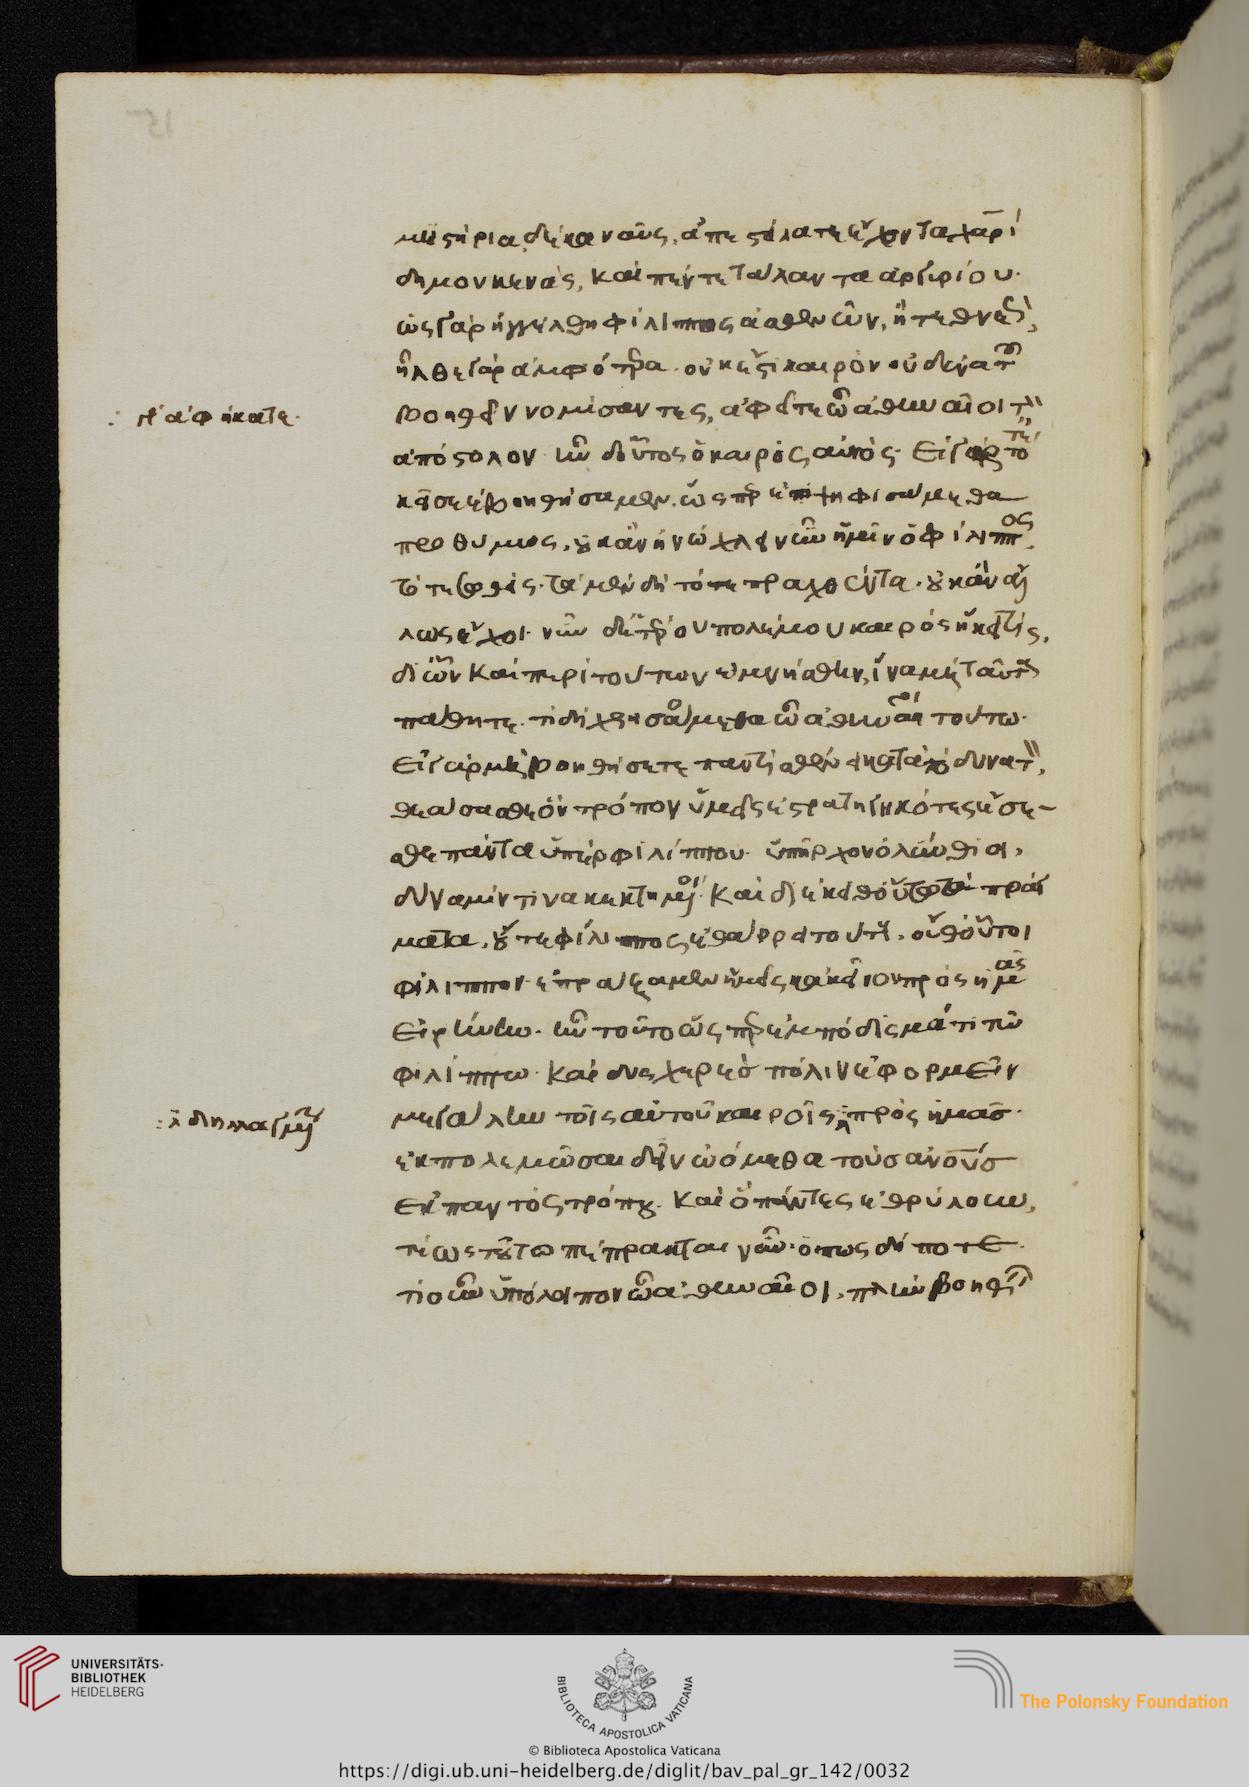 15
μυστήρια δέκα ναῦς ἀπεστείλατε ἔχοντα χαρί
δημον κενὰς, καὶ πέντε τάλαντα ἀργυρίου.
ὡς γὰρ ἠγγέλθη φίλιππος ἀσθενῶν, ἢ τεθνεὼς,
ἦλθε γὰρ ἀμφότερα. οὐκέτι καιρὸν οὐδένα τοῦ
βοηθεῖν νομίσαντες, ἀφεῖτε ὦ ἄθηναῖοι τὸν
ἀπόστολον. ἦν δ' οὗτος ὁ καιρὸς αὐτός. εἰ γὰρ τότε
: γρ ἀφήκατε.
ἐκεῖσε ἐβοηθήσαμεν, ὥσπερ ἐψηφισάμεθα
προθύμως, οὐκ ἂν ἠνώχλει νῦν ἡμῖν ὁ φίλιππος
τότε σωθείς. τὰ μὲν δὴ τότε πραχθέντα. οὐκ ἂν ἄλ
λως ἔχοι. νῦν δ' ἑτέρου πολέμου καιρὸς ἥκει τίς,
δι' ὃν καὶ περὶ τούτων ἐμνήσθην, ἵνα μὴ ταῦτα
πάθητε. τί δὴ χρησόμεθα ὦ ἄθηναῖοι τούτω.
εἰ γὰρ μὴ βοηθήσετε παντὶ σθένει κατὰ τὸ δυνατὸν,
θεάσασθε ὃν τρόπον ὑμεῖς ἐστρατηγηκότες ἔσε-
σθε πάντα ὑπὲρ φιλίππου. ὑπῆρχον ὀλύνθιοι,
δύναμίν τινα κεκτημένοι. καὶ διέκειθ' οὕτω τὰ πράγ
ματα. οὔτε φίλιππος ἐθάρρει τούτους. οὔθ' οὗτοι
φίλιππον. ἐπράξαμεν ἡμεῖς κἀκεῖνοι πρὸς ἡμᾶς
εἰρήνην. ἦν τοῦτο ὥσπερ ἐμπόδισμά τι τῶ
φιλίππω. καὶ δυσχερὲς πόλιν ἐφορμεῖν
μεγάλην τοῖς αὐτοῦ καιροῖς πρὸς ἡμᾶς.
: διηλλαγμένην
ἐκπολεμῶσαι δεῖν ὠόμεθα τοὺς ἀνους
ἐκ παντὸς τρόπου. καὶ ὃ πάντες ἐθρύλουν,
τέως τοῦτο πέπρακται νῦν. ὅπως δή ποτε.
τί οὖν ὑπόλοιπον ὦ ἄθηναῖοι, πλὴν βοηθεῖν
UNIVERSITÄTS-
BIBLIOTHEK
HEIDELBERG
BIBLIOTECA APOSTOLICA VATICANA
The Polonsky Foundation
© Biblioteca Apostolica Vaticana
https://digi.ub.uni-heidelberg.de/diglit/bav_pal_gr_142/0032